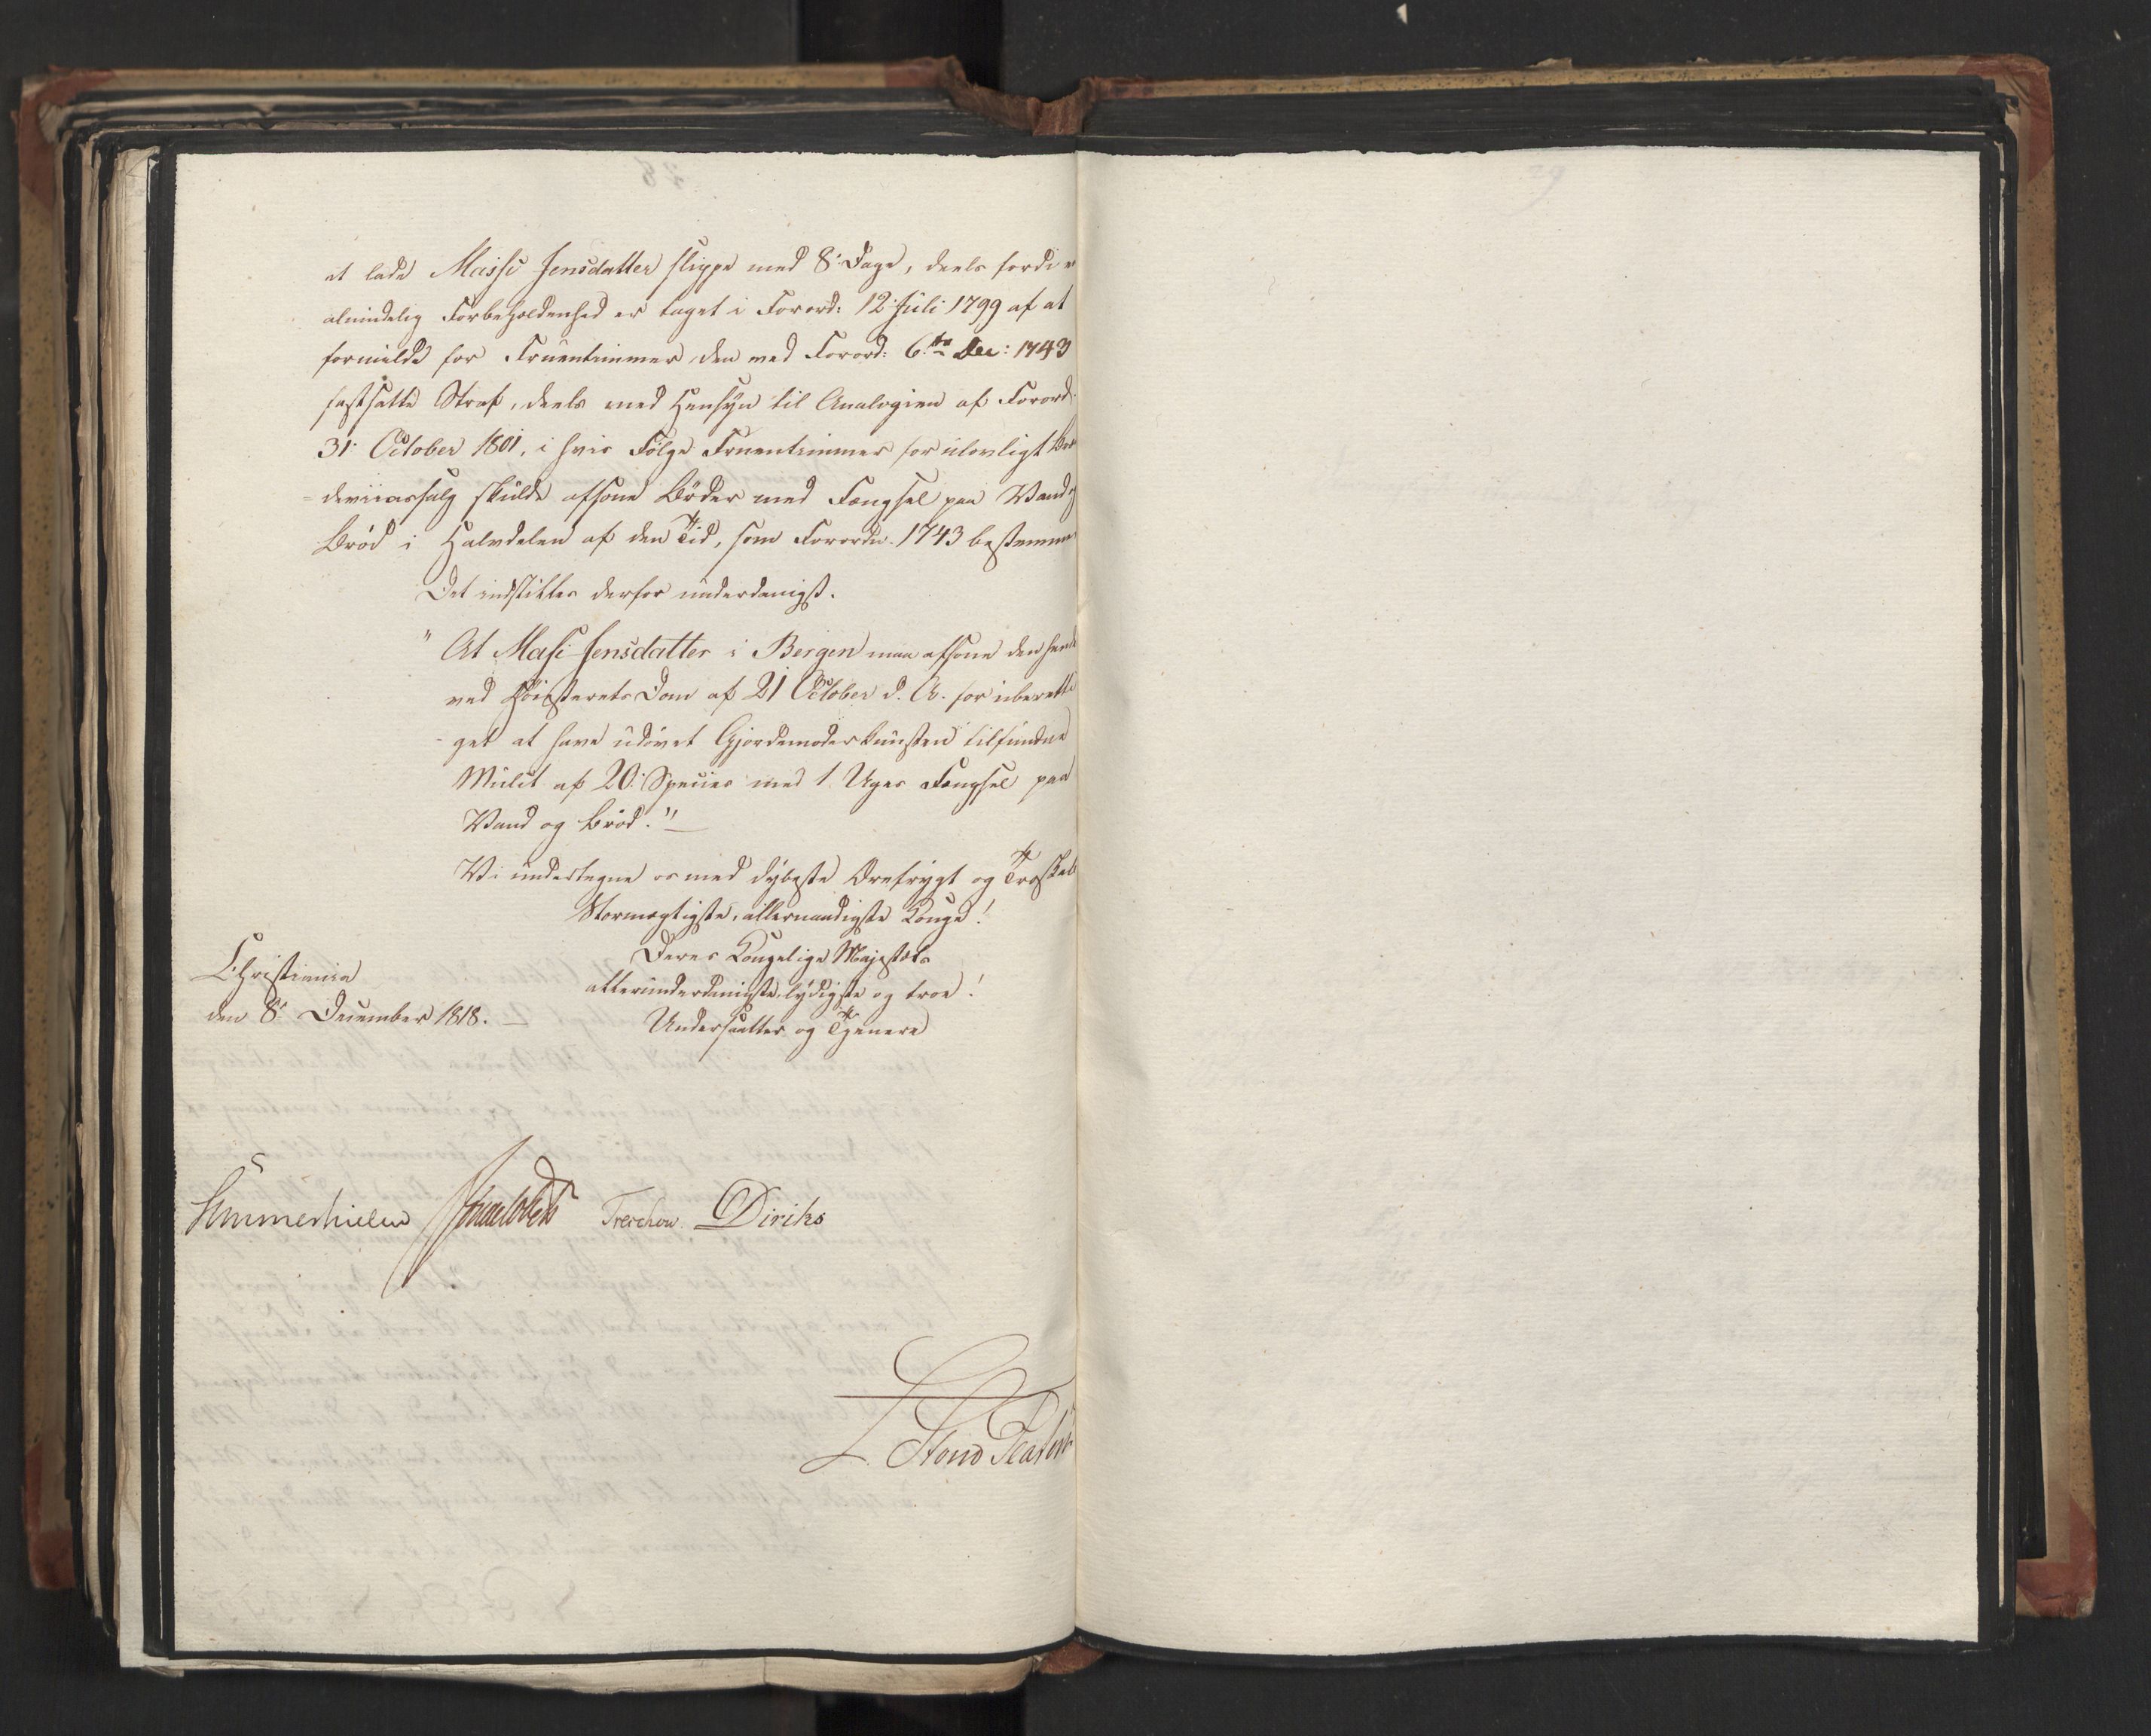 at lade Massi Jensdatter slippe med 8 Dage, deels fordi
almindelig Forbeholdenhed er taget i Forord: 12 Juli 1799 af at
formilde for Fruentimmer den ved Forord: 6te Dec: 1743
fastsatte Straf, deels med Hensyn til Analogien af Forord.
31 October 1801, i hvis Følge Fruentimmer for ulovligt
skulde afsone Bøder med Fængsel paa Vand og
Brød i Halvdelen af den Tid, som Forordn. 1743 bestemmer
Det indstilles derfor underdanigst.
"At Massi Jensdatter i Bergen maa afsone den hende
ved Høiesterets Dom af 21 October d. A. for uberetti-
get at have udøvet Gjordemoderkunsten tilfundne
Mulct af 20 Species med 1 Uges Fængsel paa
Vand og Brød."
Vi undertegne os med dybeste Ærefrygt og Troskab
Stormægtigste, allernaadigste Konge!
Deres Kongelige Majestæts
allerunderdanigste, lydigste og troe!
Undersaatter og Tjenere
Christiania
den 8 December 1818.
Sommerhielm Treschow Diriks